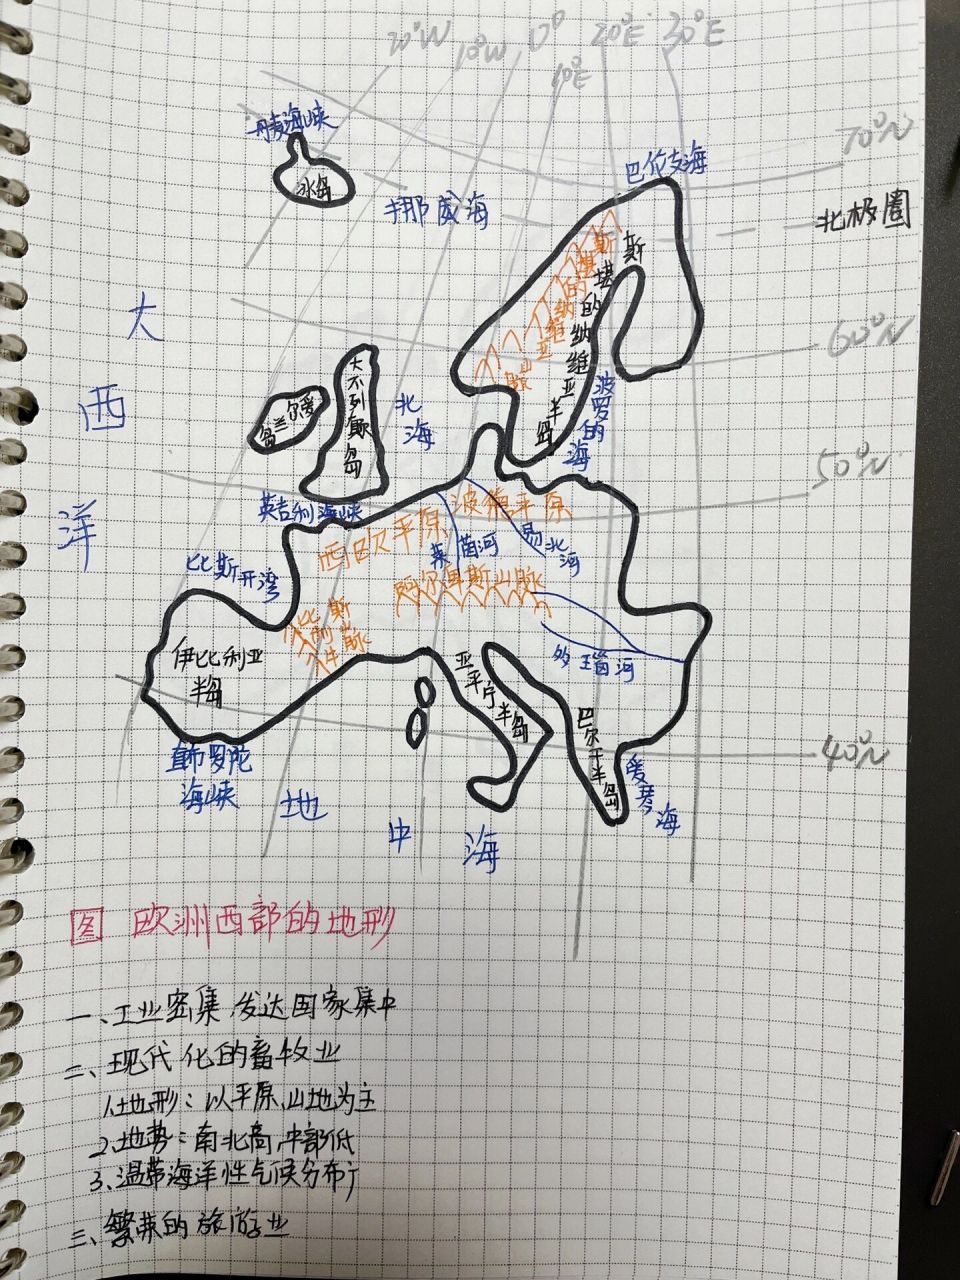 20°W 10°W 0° 20°E 30°E
10°E
丹麦海峡
70°N
冰岛
巴伦支海
挪威海
北极圈
斯堪的纳维亚山脉
斯堪的纳维亚半岛
大西洋
60°N
大不列颠岛
爱尔兰岛
北海
波罗的海
50°N
英吉利海峡
西欧平原
波德平原
莱茵河
易北河
比斯开湾
阿尔卑斯山脉
比利牛斯山脉
伊比利亚
半岛
多瑙河
亚平宁半岛
巴尔干半岛
40°N
直布罗陀
海峡
爱琴海
地中海
图 欧洲西部的地形
一、工业密集,发达国家集中
二、现代化的畜牧业
1.地形:以平原、山地为主
2.地势:南北高,中部低
3.温带海洋性气候分布广
三、繁荣的旅游业